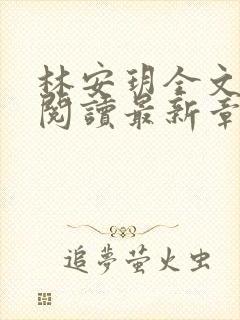 林安玥全文
閱讀最新章
追夢萤火虫